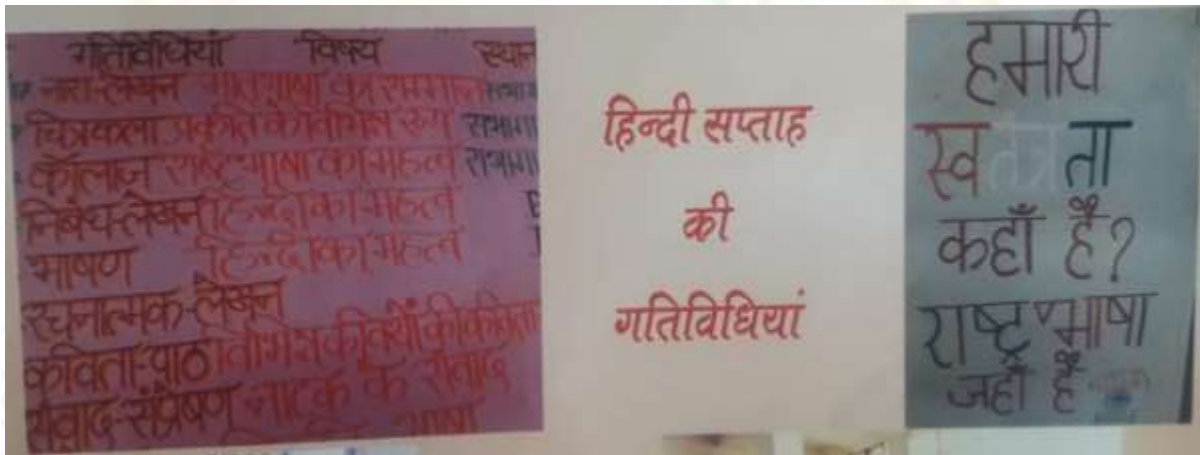 गतिविधियां विषय स्थान
नारा-लेखन मातृभाषा का सम्मान
चित्रकला प्रकृति का विभिन्न रूप सभागा
कॉलाज राष्ट्रभाषा का महत्व सभागा
निबंध-लेखन हिन्दी का महत्व
भाषण हिन्दी का महत्व
रचनात्मक-लेखन
कविता-पाठ विभिन्न कवियों की कविता
संवाद-संप्रेषण नाटक के संवाद
भाषा
हिन्दी सप्ताह
की
गतिविधियां
हमारी
स्वतंत्रता
कहाँ है?
राष्ट्रभाषा
जहाँ है